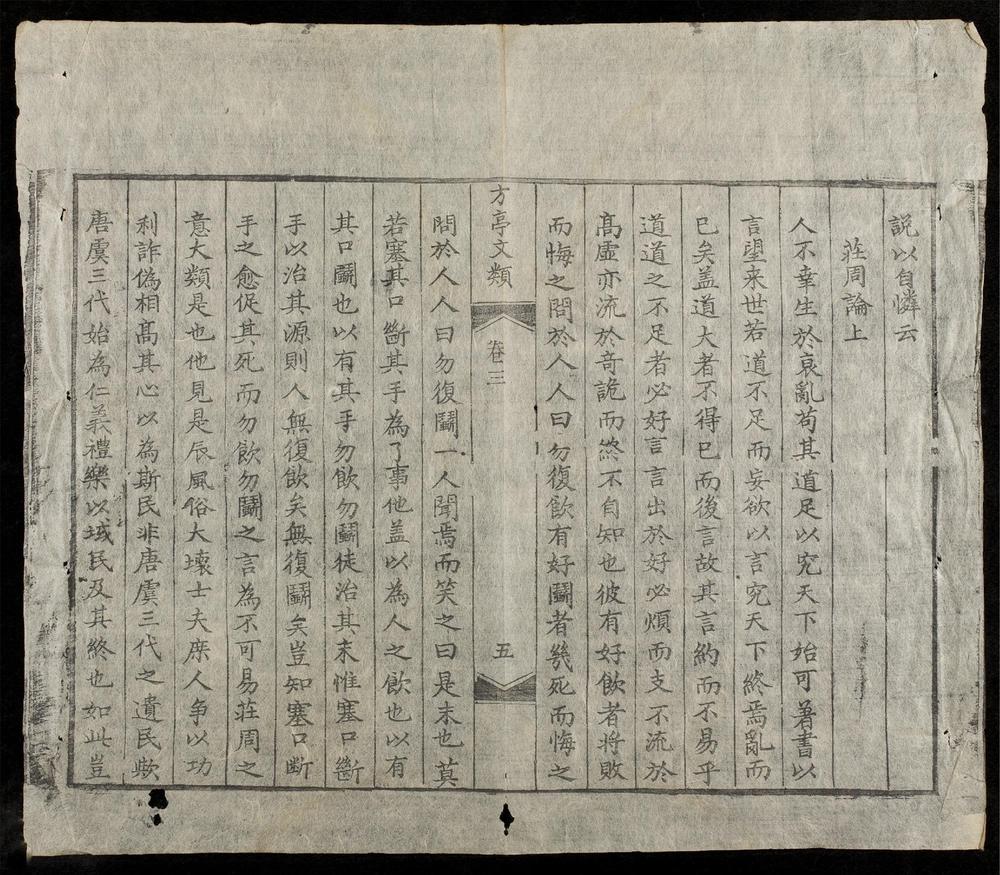 説以自憐云
莊周論上
人不幸生於衰亂苟其道足以究天下始可著書以
言望来世若道不足而妄欲以言究天下終焉亂而
已矣盖道大者不得已而後言故其言約而不易乎
道道之不足者必好言言出於好必煩而支不流於
髙虛亦流於奇詭而終不自知也彼有好飲者将敗
而悔之問於人人曰勿復飲有好鬬者幾死而悔之
方亭文類
卷三
五
問於人人曰勿復鬬一人聞焉而笑之曰是末也莫
若塞其口斷其手為了事他盖以為人之飲也以有
其口鬬也以有其手勿飲勿鬬徒治其末惟塞口斷
手以治其源則人無復飲矣無復鬬矣豈知塞口断
手之愈促其死而勿飲勿鬬之言為不可易莊周之
意大類是也他見是辰風俗大壞士夫庶人争以功
利詐偽相髙其心以為斯民非唐虞三代之遺民歟
唐虞三代始為仁義禮樂以域民及其終也如此豈